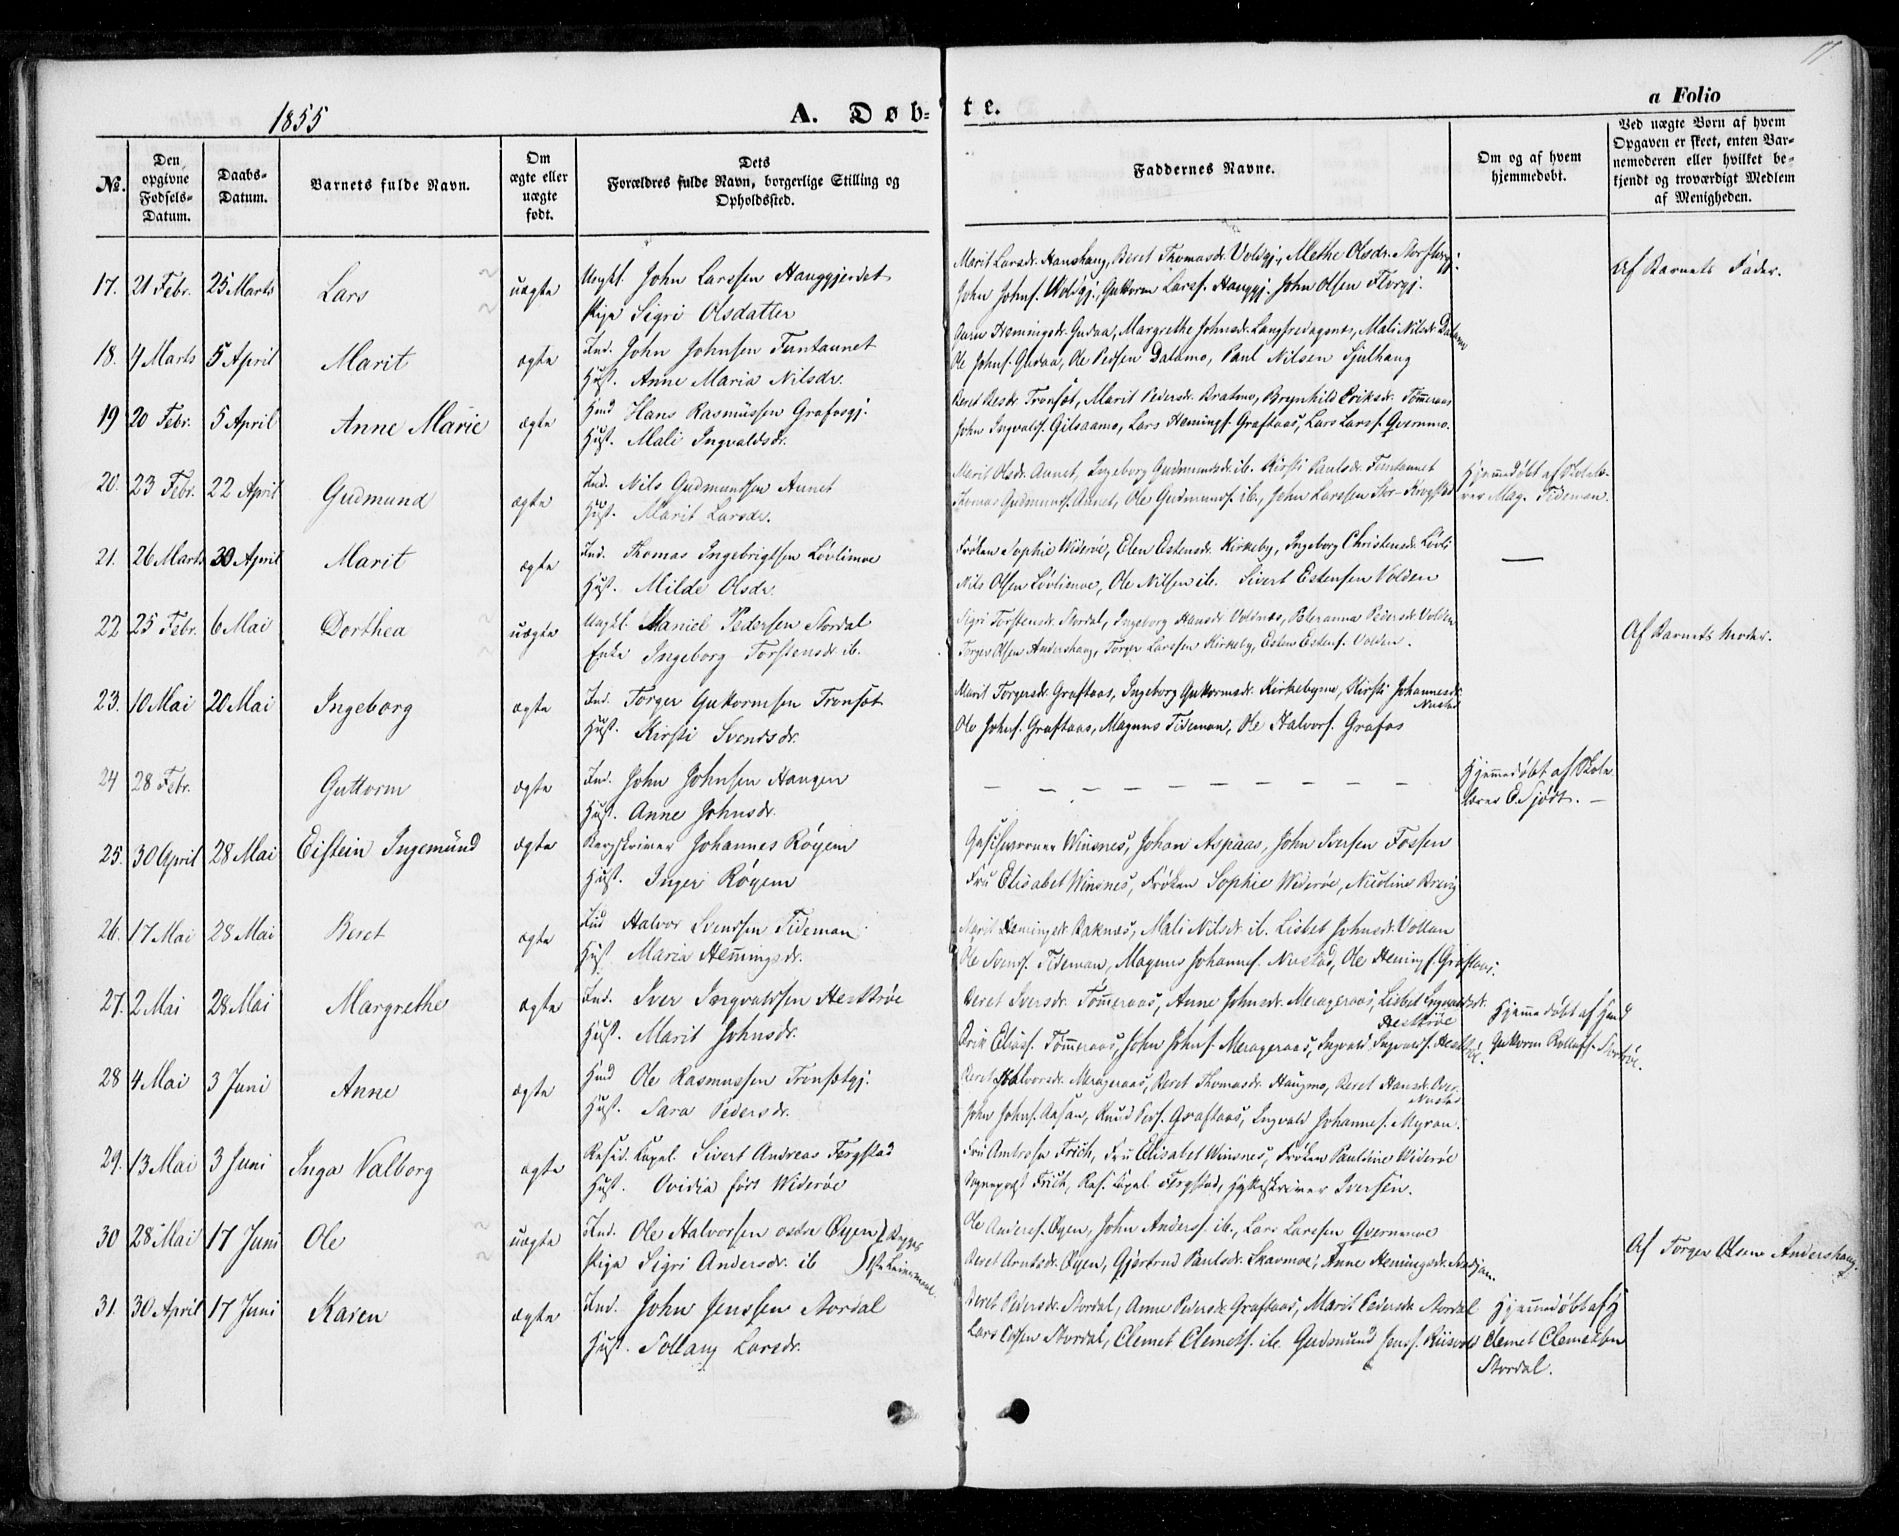 17
1855
A. Døb-
te.
a Folio
No.
Den opgivne Fødsels-Datum.
Daabs-Datum.
Barnets fulde Navn.
Om ægte eller uægte født.
Dets Forældres fulde Navn, borgerlige Stilling og Opholdssted.
Faddernes Navne.
Om og af hvem hjemmedøbt.
Ved uægte Børn af hvem Opgaven er skeet, enten Barnemoderen eller hvilket bekjendt og troværdigt Medlem af Menigheden.
17. 21 Febr. 25 Marts Lars uægte Ungkl. John Larssen Hauggjerdet
Pige Sigri Olsdatter
Marit Larsdr. Hanshaug, Beret Thomasdr. Voldgj., Methe Olsdr.
John Johns. Voldgj., Guttorm Larss. Hauggj. John Olsen Florgj.
Af Barnets Fader.
18. 9 Marts 5 April Marit ægte Ind. John Johnsen Tuntaunet
Hust. Anne Maria Nilsdr.
Hemingsdr. Gudaa, Margrethe Johnsdr. Mali Nilsdr. Dalamo
Ole Johns. Gudaa, Ole Pedsen Dalamo, Paul Nilsen Sjulhaug
19 20 Febr. 5 April Anne Marie ægte Hmd Hans Rasmussen Grafosgj.
Hust. Mali Ingvaldsdr.
Beret Tronsøt, Marit Pedersdr. Bratmo, Brynhild Eriksdr. Tømeraas
John Ingvalds. Gilsaamo, Lars Hemings. Graftaas, Lars Larss. Qvernmo.
20. 23 Febr. 22 April Gudmund ægte Ind. Nils Gudmundsen Aunet
Hust. Marit Larsdr.
Marit Olsdr. Aunet, Ingeborg Gudmundsdr. ib. Kirsti Paulsdr. Tuntaunet
Thomas Gudmunds. Aunet, Ole Gudmunds. ib., John Larssen Stor-Krogstad
Hjemmedøbt af Skolelærer Mag. Tideman.
21. 26 Marts 30 April Marit ægte Ind. Thomas Ingebrigtsen Løvlimoe
Hust. Milde Olsdr.
Frøken Sophie Widerøe, Elen Estensdr. Kirkeby, Ingeborg Christensdr. Løvli
Nils Olsen Løvlimoe, Ole Nilsen ib. Sivert Estensen Volden
—
22 25 Febr. 6 Mai Dorthea uægte Ungkl. Daniel Pedersen Stordal
Enke Ingeborg Torstensdr. ib.
Sigri Torstensdr. Stordal, Ingeborg Hansdr. Voldnæs, Peteranna Pedersdr. Volden
Torger Olsen Andershaug, Torger Larssen Kirkeby, Esten Estens. Volden.
Af Barnets Moder.
23. 10 Mai 20 Mai Ingeborg ægte Ind. Torger Guttormsen Tronsøt
Hust. Kirsti Svendsdr.
Marit Torgersdr. Graftaas, Ingeborg Guttormsdr. Kirkebymo, Kirsti Johannesdr. Nustad
Ole Johns. Graftaas, Magnus Tideman, Ole Halvors. Grafos
24 28 Febr. Guttorm ægte Ind. John Johnsen Haugen
Hust. Anne Johnsdr.
— — — — — — — — — —
Hjemmedøbt af Skolelærer E. Fjødt. —
25. 30 April 28 Mai Eistein Ingemund ægte Bergskriver Johannes Røyem
Hust. Inger Røyem
Winsnes, Johan Aspaas, John Iversen Fossen
Fru Elisabet Winsnes, Frøken Sophie Widerøe, Nicoline Brevig
26. 17 Mai 28 Mai Beret ægte Ind Halvor Svendsen Tideman
Hust. Maria Hemingsdr.
Marit Hemingsdr. Raknæs, Mali Nilsdr. ib. Lisbet Johnsdr. Vollan
Ole Svends. Tideman, Magnus Johannes. Nustad, Ole Hemings. Graftaas.
27. 2 Mai 28 Mai Margrethe ægte Ind. Iver Ingvaldsen Hestbøe
Hust. Marit Johnsdr.
Beret Iversdr. Tømeraas, Anne Johnsdr. Merageraas, Lisbet Ingvaldsdr. Hestbøe
Erik Elias. Tømeraas, John Johns. Merageraas, Ingvald Ingvalds. Hestbøe.
Hjemmedøbt af Hmd Guttorm Rollefs.
28 4 Mai 3 Juni Anne ægte Hmd Ole Rasmussen Tronsøtgj.
Hust. Sara Pedersdr.
Beret Halvorsdr. Merageraas, Beret Thomasdr. Haugmo, Beret Hansdr. Over-Nustad
John Johns. Aasan, Knud Peds. Graftaas, Ingvald Johannes. Myran.
29. 13 Mai 3 Juni Inga Valborg ægte Resid. Capel. Sivert Andreas Fergstad
Hust. Ovidia født Widerøe
Fru Ambrosia Frich, Fru Elisabet Winsnes, Frøken Pauline Widerøe
Frich, Res. Capel. Fergstad, Hytteskriver Iversen.
30 28 Mai 17 Juni Ole uægte Ind. Ole Halvorsen østre Øyen
Pige Sigri Andersdr. ib } Begges 1ste Leiermaal.
Ole Anders. Øyen, John Anderss. ib., Lars Larssen Qvernmoe
Beret Arntsdr. Øyen, Gjertrud Paulsdr. Skarmoe, Anne Hemingsdr.
Af Torger Olsen Andershaug.
31. 30 April 17 Juni Karen ægte Ind. John Jenssen Stordal
Hust. Sollaug Larsdr.
Beret Pedersdr. Stordal, Anne Pedersdr. Graftaas, Marit Pedersdr. Stordal
Lars Olsen Stordal, Clemet Clemets. ib. Gudmund Jens. Riisvold
Hjemmedøbt af H Clemet Clemetsen Stordal.